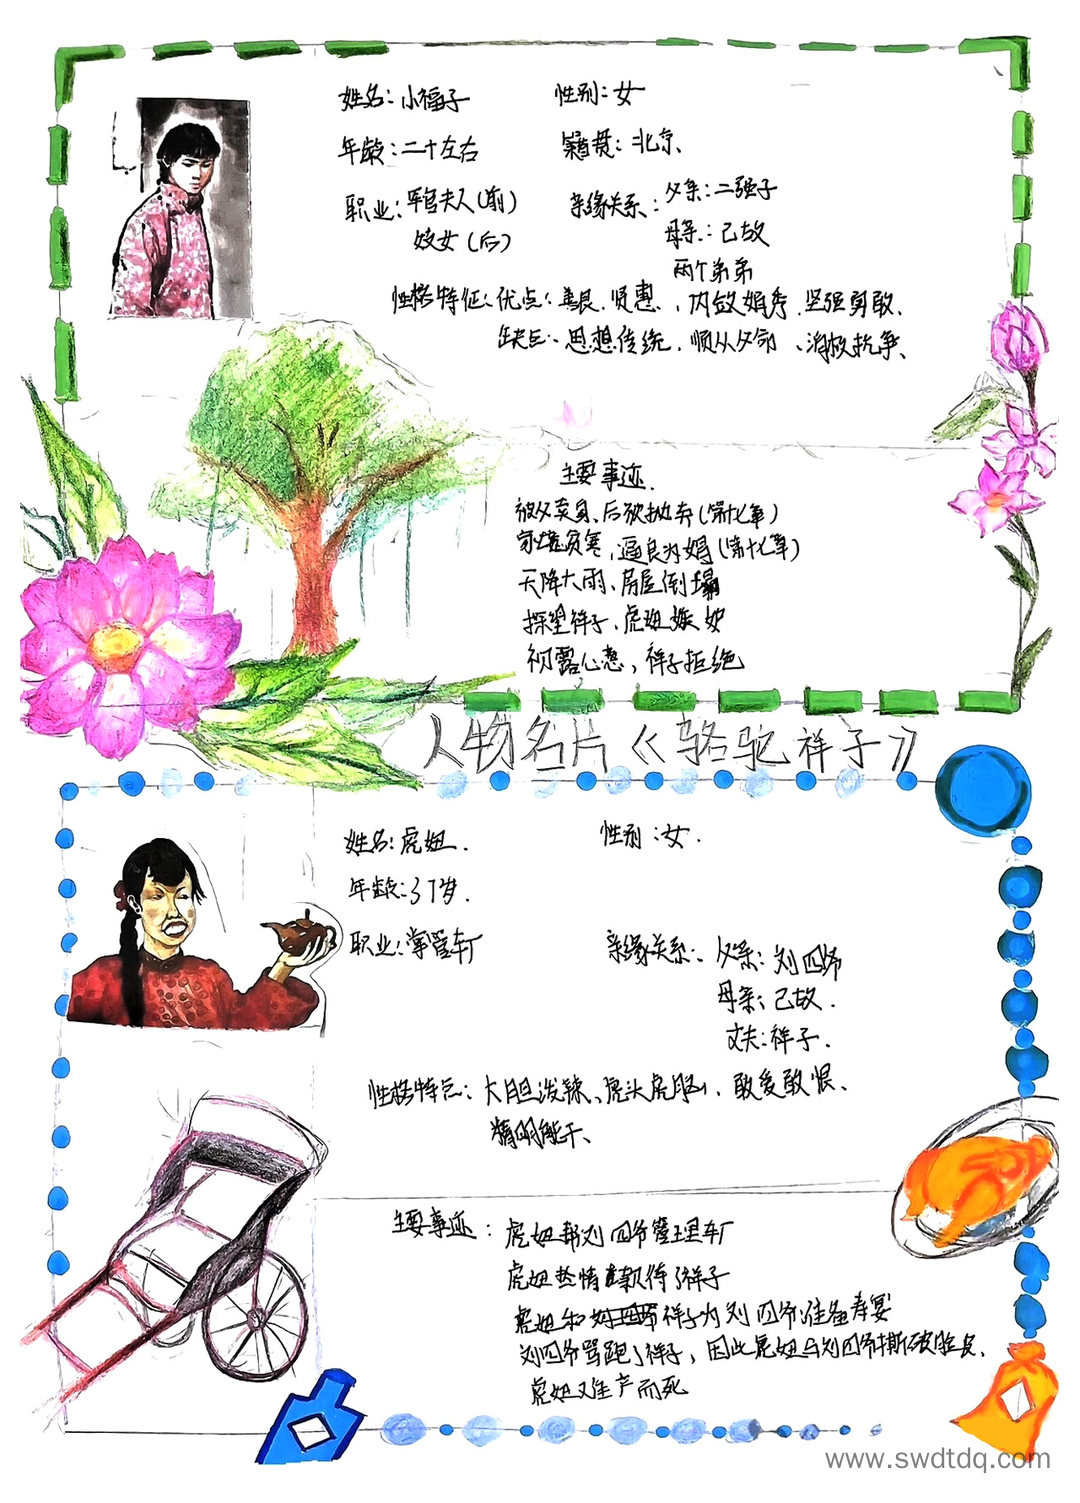 姓名：小福子 性别：女
年龄：二十左右 籍贯：北京、
职业：军官夫人(前) 亲缘关系：父亲：二强子
妓女(后) 母亲：已故
两个弟弟
性格特征：优点：善良、贤惠、内敛娟秀、坚强勇敢、
缺点：思想传统、顺从父命、消极抗争、
主要事迹.
被父卖身、后被抛弃(第十七章)
家境贫寒，逼良为娼(第十七章)
天降大雨、房屋倒塌
探望祥子、虎妞嫉妒
初露心意，祥子拒绝
人物名片《骆驼祥子》
姓名：虎妞. 性别：女.
年龄：37岁.
职业：掌管车厂 亲缘关系：父亲：刘四爷
母亲：已故.
丈夫：祥子.
性格特点：大胆泼辣、虎头虎脑、敢爱敢恨、
精明能干、
主要事迹：虎妞帮刘四爷管理车厂
虎妞热情款待了祥子
虎妞和祥子为刘四爷准备寿宴
刘四爷骂跑了祥子，因此虎妞与刘四爷撕破脸皮.
虎妞难产而死
www.swdtdq.com